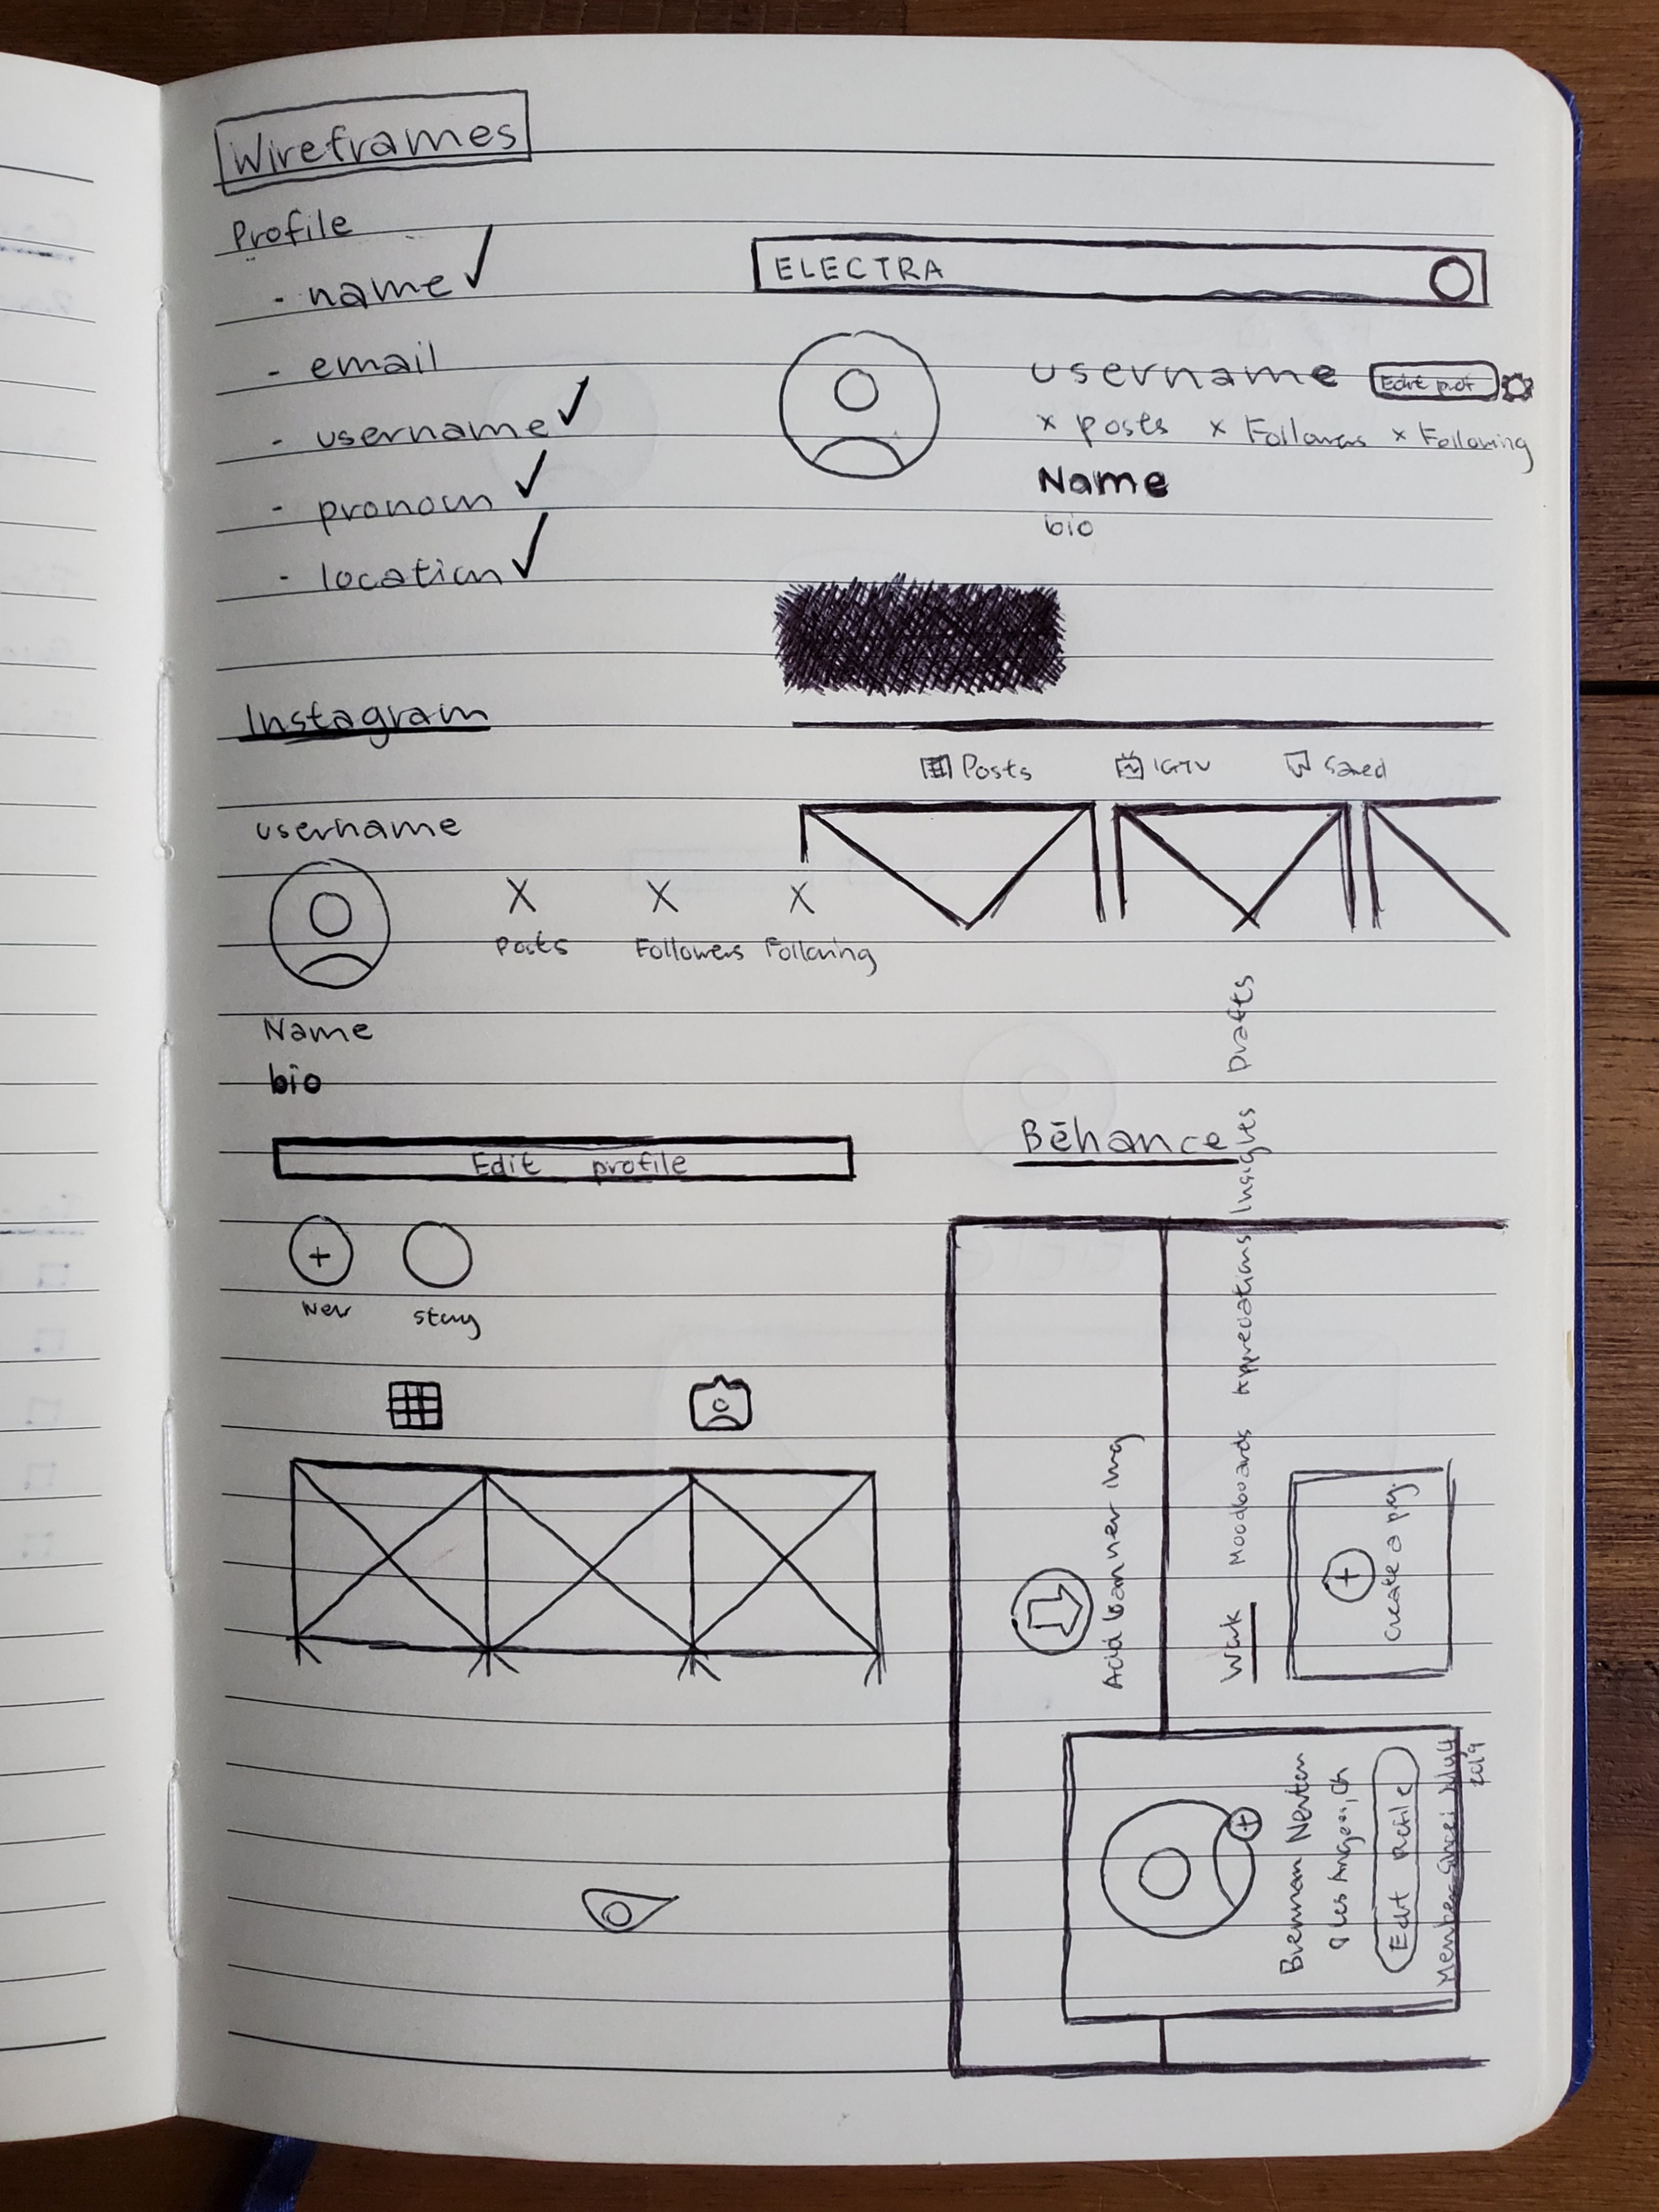 Wireframes
Profile
- name ✓
- email
- username ✓
- pronoun ✓
- location ✓
ELECTRA
username Edit prof
x posts x Followers x Following
Name
bio
Posts IGTV Saved
Instagram
username
X X X
Posts Followers Following
Name
bio
Edit profile
+
New Story
Bēhance
Add banner img
Work Moodboards Appreciations Insights Drafts
+
Create a proj.
+
Brennan Newton
Los Angeles, CA
Edit Profile
Member Since: July 4
2019